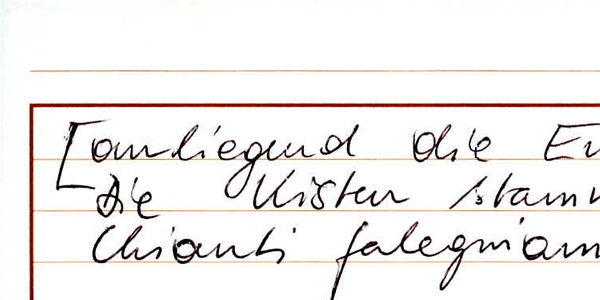 [anliegend die En
Die Kisten stamm
Chianti falegnam